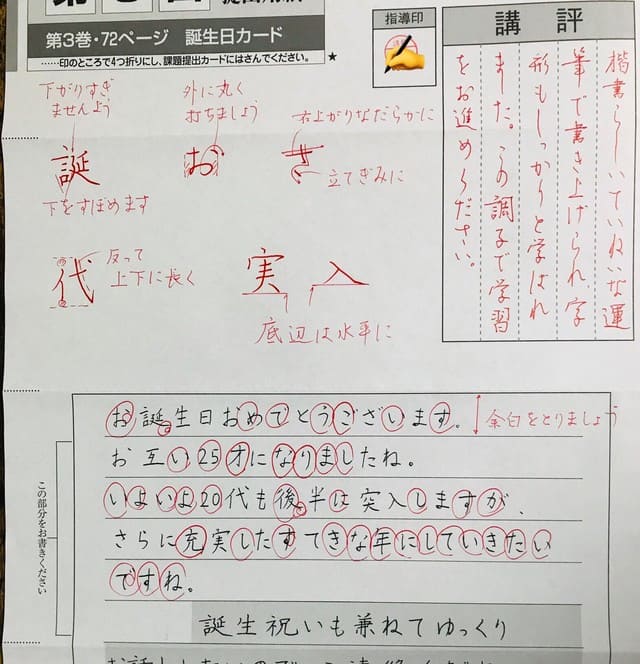 第3巻・72ページ 誕生日カード
……印のところで4つ折りにし、課題提出カードにはさんでください。
★
指導印
講評
楷書らしいていねいな運
筆で書き上げられ、字
形もしっかりと学ばれ
ました。この調子で学習
をお進めください。
下がりすぎ
ませんよう
誕
下をすぼめます
外に丸く
打ちましょう
お
右上がりなだらかに
き
立てぎみに
代
反って
上下に長く
実 入
底辺は水平に
お誕生日おめでとうございます。
余白をとりましょう
お互い25才になりましたね。
いよいよ20代も後半に突入しますが、
さらに充実したすてきな年にしていきたい
ですね。
この部分をお書きください
誕生祝いも兼ねてゆっくり